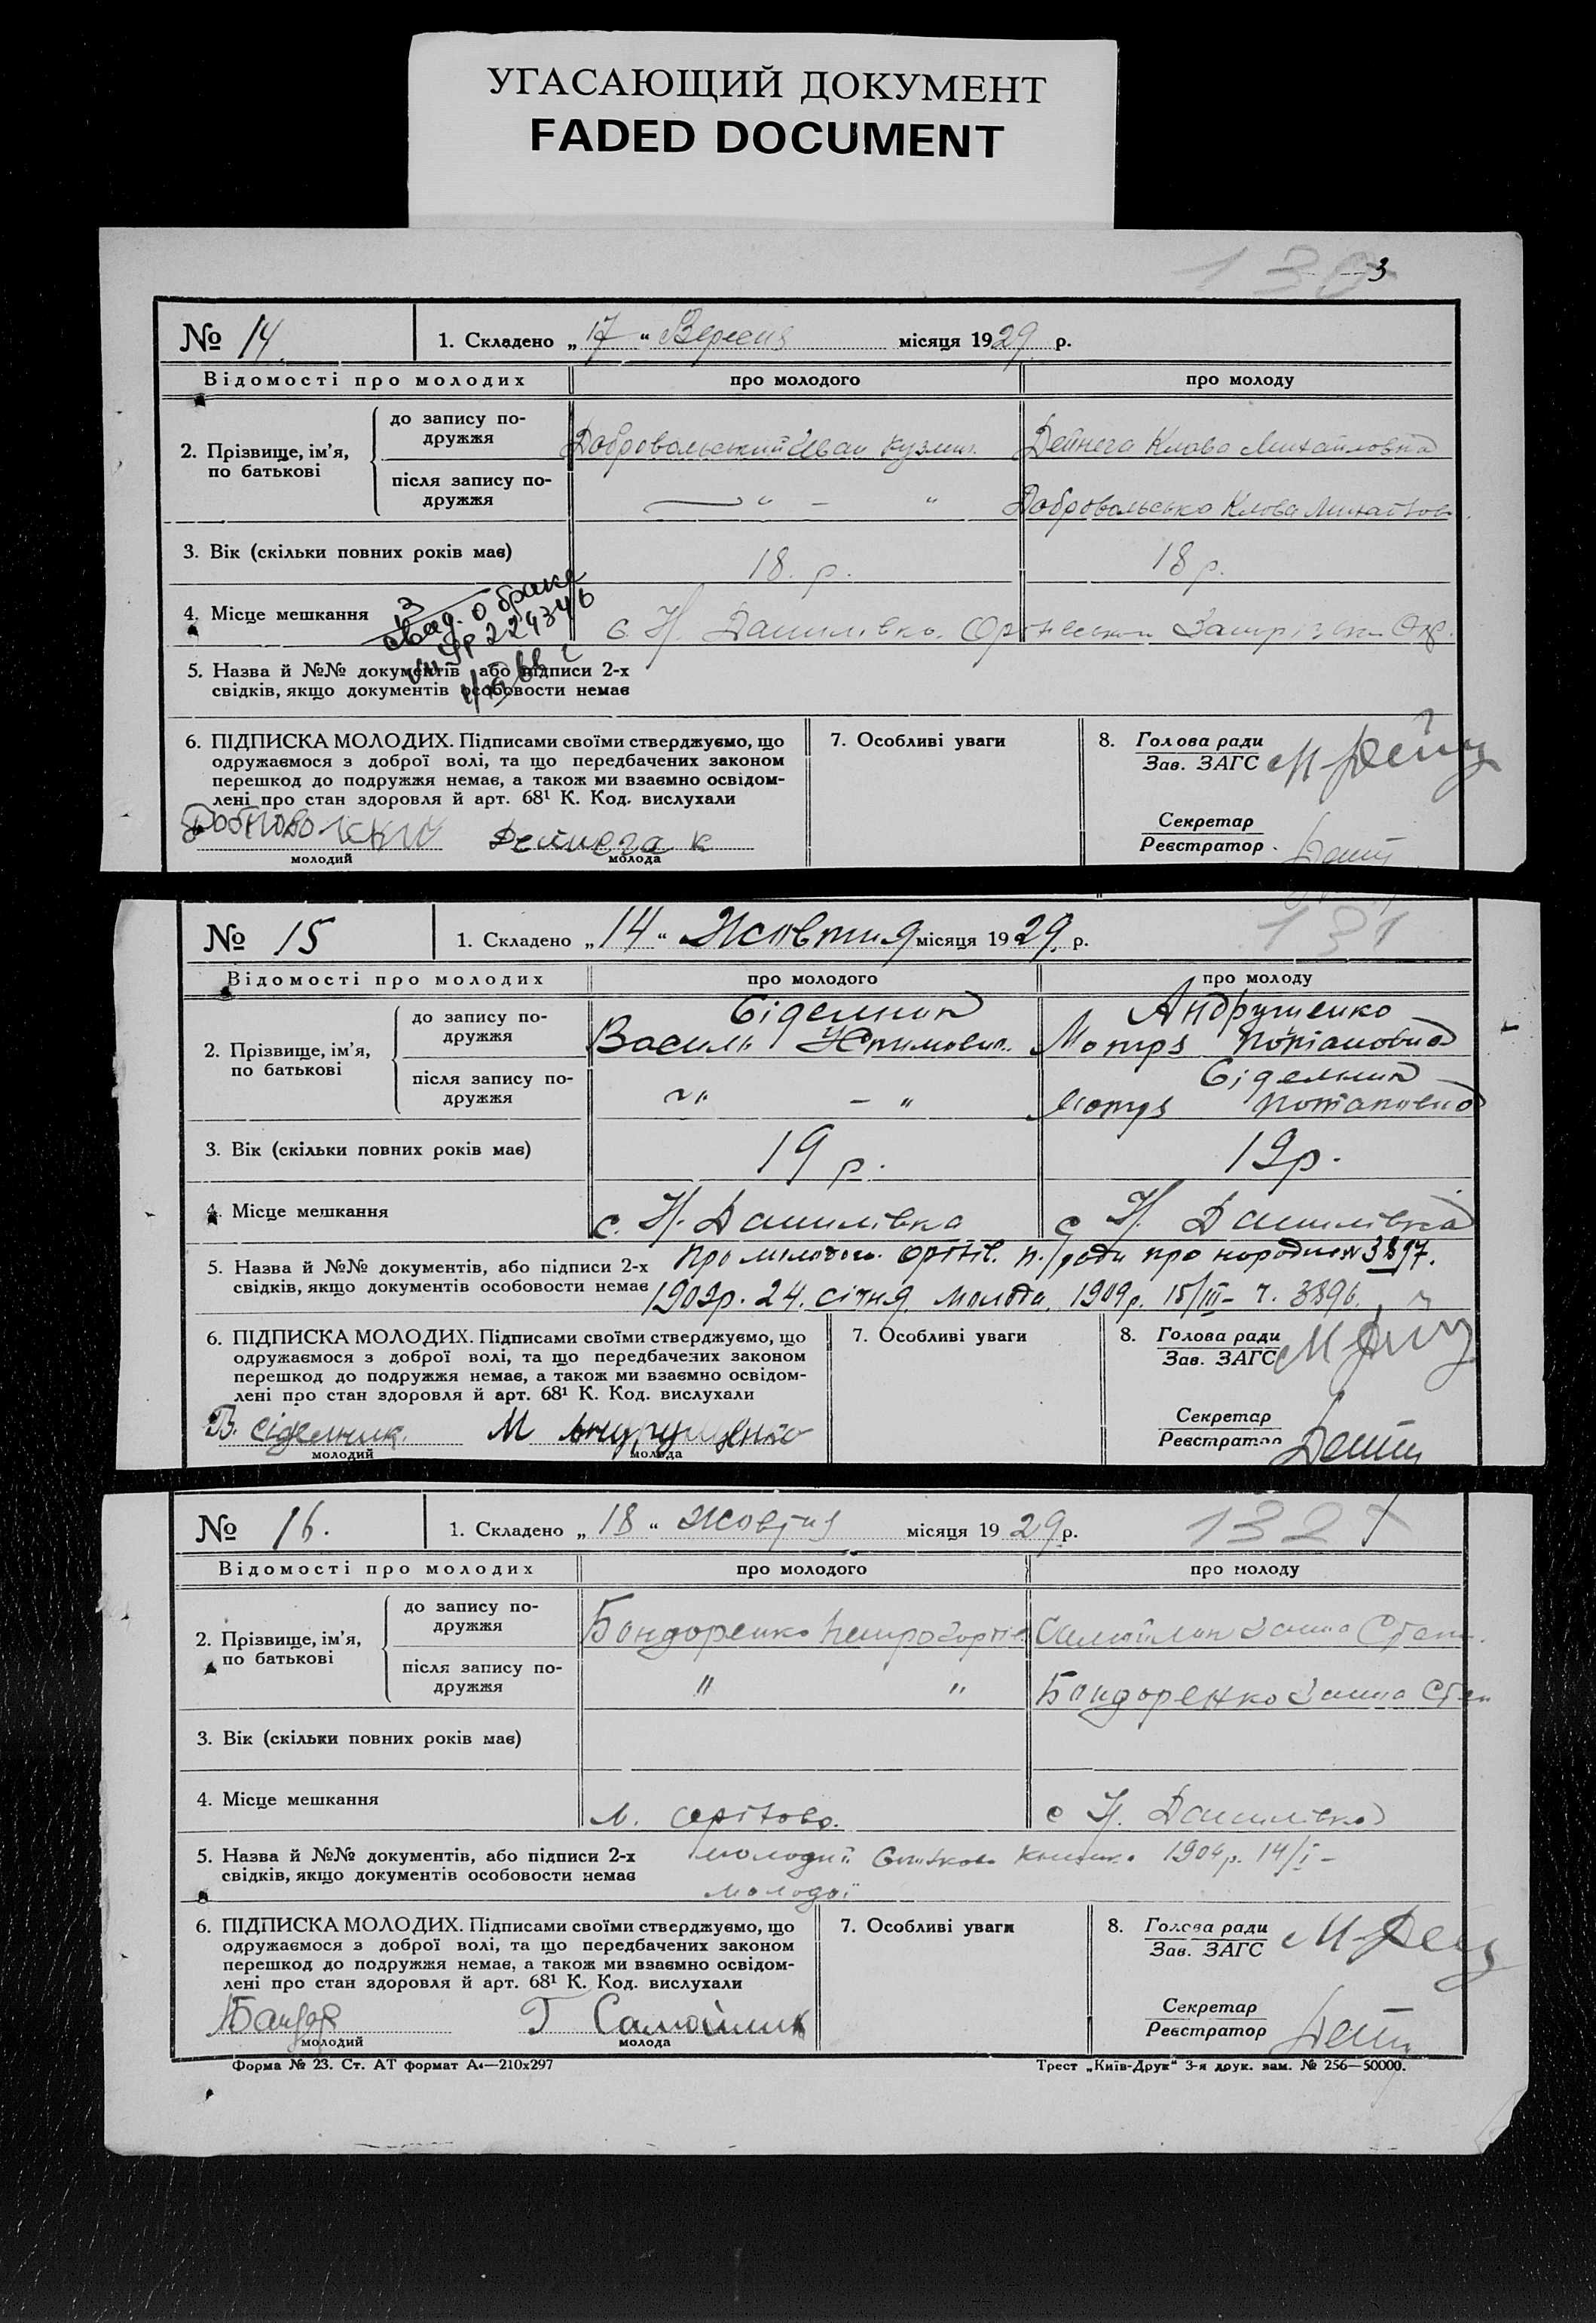 УГАСАЮЩИЙ ДОКУМЕНТ
FADED DOCUMENT
130 3
№ 14. 1. Складено „17“ Вересня місяця 1929 р.
Відомості про молодих про молодого про молоду
2. Прізвище, ім'я, по батькові
до запису подружжя Добровольський Иван Кузмич. Дейнега Клава Михайловна
після запису подружжя — " — " Добровольсько Клава Михайлов
3. Вік (скільки повних років має) 18. р. 18 р.
4. Місце мешкання с. Н. Данилівка. Оріхівськ Запоріз Окр.
свид. о браке
224346
5. Назва й №№ документів або підписи 2-х
свідків, якщо документів особовости немає
6. ПІДПИСКА МОЛОДИХ. Підписами своїми стверджуємо, що
одружаємося з доброї волі, та що передбачених законом
перешкод до подружжя немає, а також ми взаємно освідом-
лені про стан здоровля й арт. 68¹ К. Код. вислухали
7. Особливі уваги
8. Голова ради
Зав. ЗАГС
Секретар
Реєстратор
Дейнега К
молодий молода
№ 15 1. Складено „14“ Жовтня місяця 1929. р. 131
Відомості про молодих про молодого про молоду
2. Прізвище, ім'я, по батькові
до запису подружжя Сідельник Андрущенко
Василь Мотря Потаповна
після запису подружжя " — " Сідельник
Мотря Потаповна
3. Вік (скільки повних років має) 19 р. 19р.
4. Місце мешкання с. Н. Данилівка с Н. Данилівка
5. Назва й №№ документів, або підписи 2-х Про молодого. Оріхів. р./ради про народжен 3897.
свідків, якщо документів особовости немає 1909р. 24. січня, молода. 1909р. 15/III – ч. 3896.
6. ПІДПИСКА МОЛОДИХ. Підписами своїми стверджуємо, що
одружаємося з доброї волі, та що передбачених законом
перешкод до подружжя немає, а також ми взаємно освідом-
лені про стан здоровля й арт. 68¹ К. Код. вислухали
7. Особливі уваги
8. Голова ради
Зав. ЗАГС
Секретар
Реєстратор
В. Сідельник. М Андрущенко
молодий молода
№ 16. 1. Складено „18“ Жовтня місяця 1929 р. 132
Відомості про молодих про молодого про молоду
2. Прізвище, ім'я, по батькові
до запису подружжя Бондоренко Петро Самойлик Ганна Степ.
після запису подружжя " " Бондоренко Ганна Степ
3. Вік (скільки повних років має)
4. Місце мешкання м. Оріхово. с Н. Данилівка
5. Назва й №№ документів, або підписи 2-х молодий Книжка 1904р. 14/I –
свідків, якщо документів особовости немає молодої
6. ПІДПИСКА МОЛОДИХ. Підписами своїми стверджуємо, що
одружаємося з доброї волі, та що передбачених законом
перешкод до подружжя немає, а також ми взаємно освідом-
лені про стан здоровля й арт. 68¹ К. Код. вислухали
7. Особливі уваги
8. Голова ради
Зав. ЗАГС
Секретар
Реєстратор
Г Самойлик
молодий молода
Форма № 23. Ст. АТ формат А₄—210х297 Трест „Київ-Друк“ 3-я друк. зам. № 256—50000.